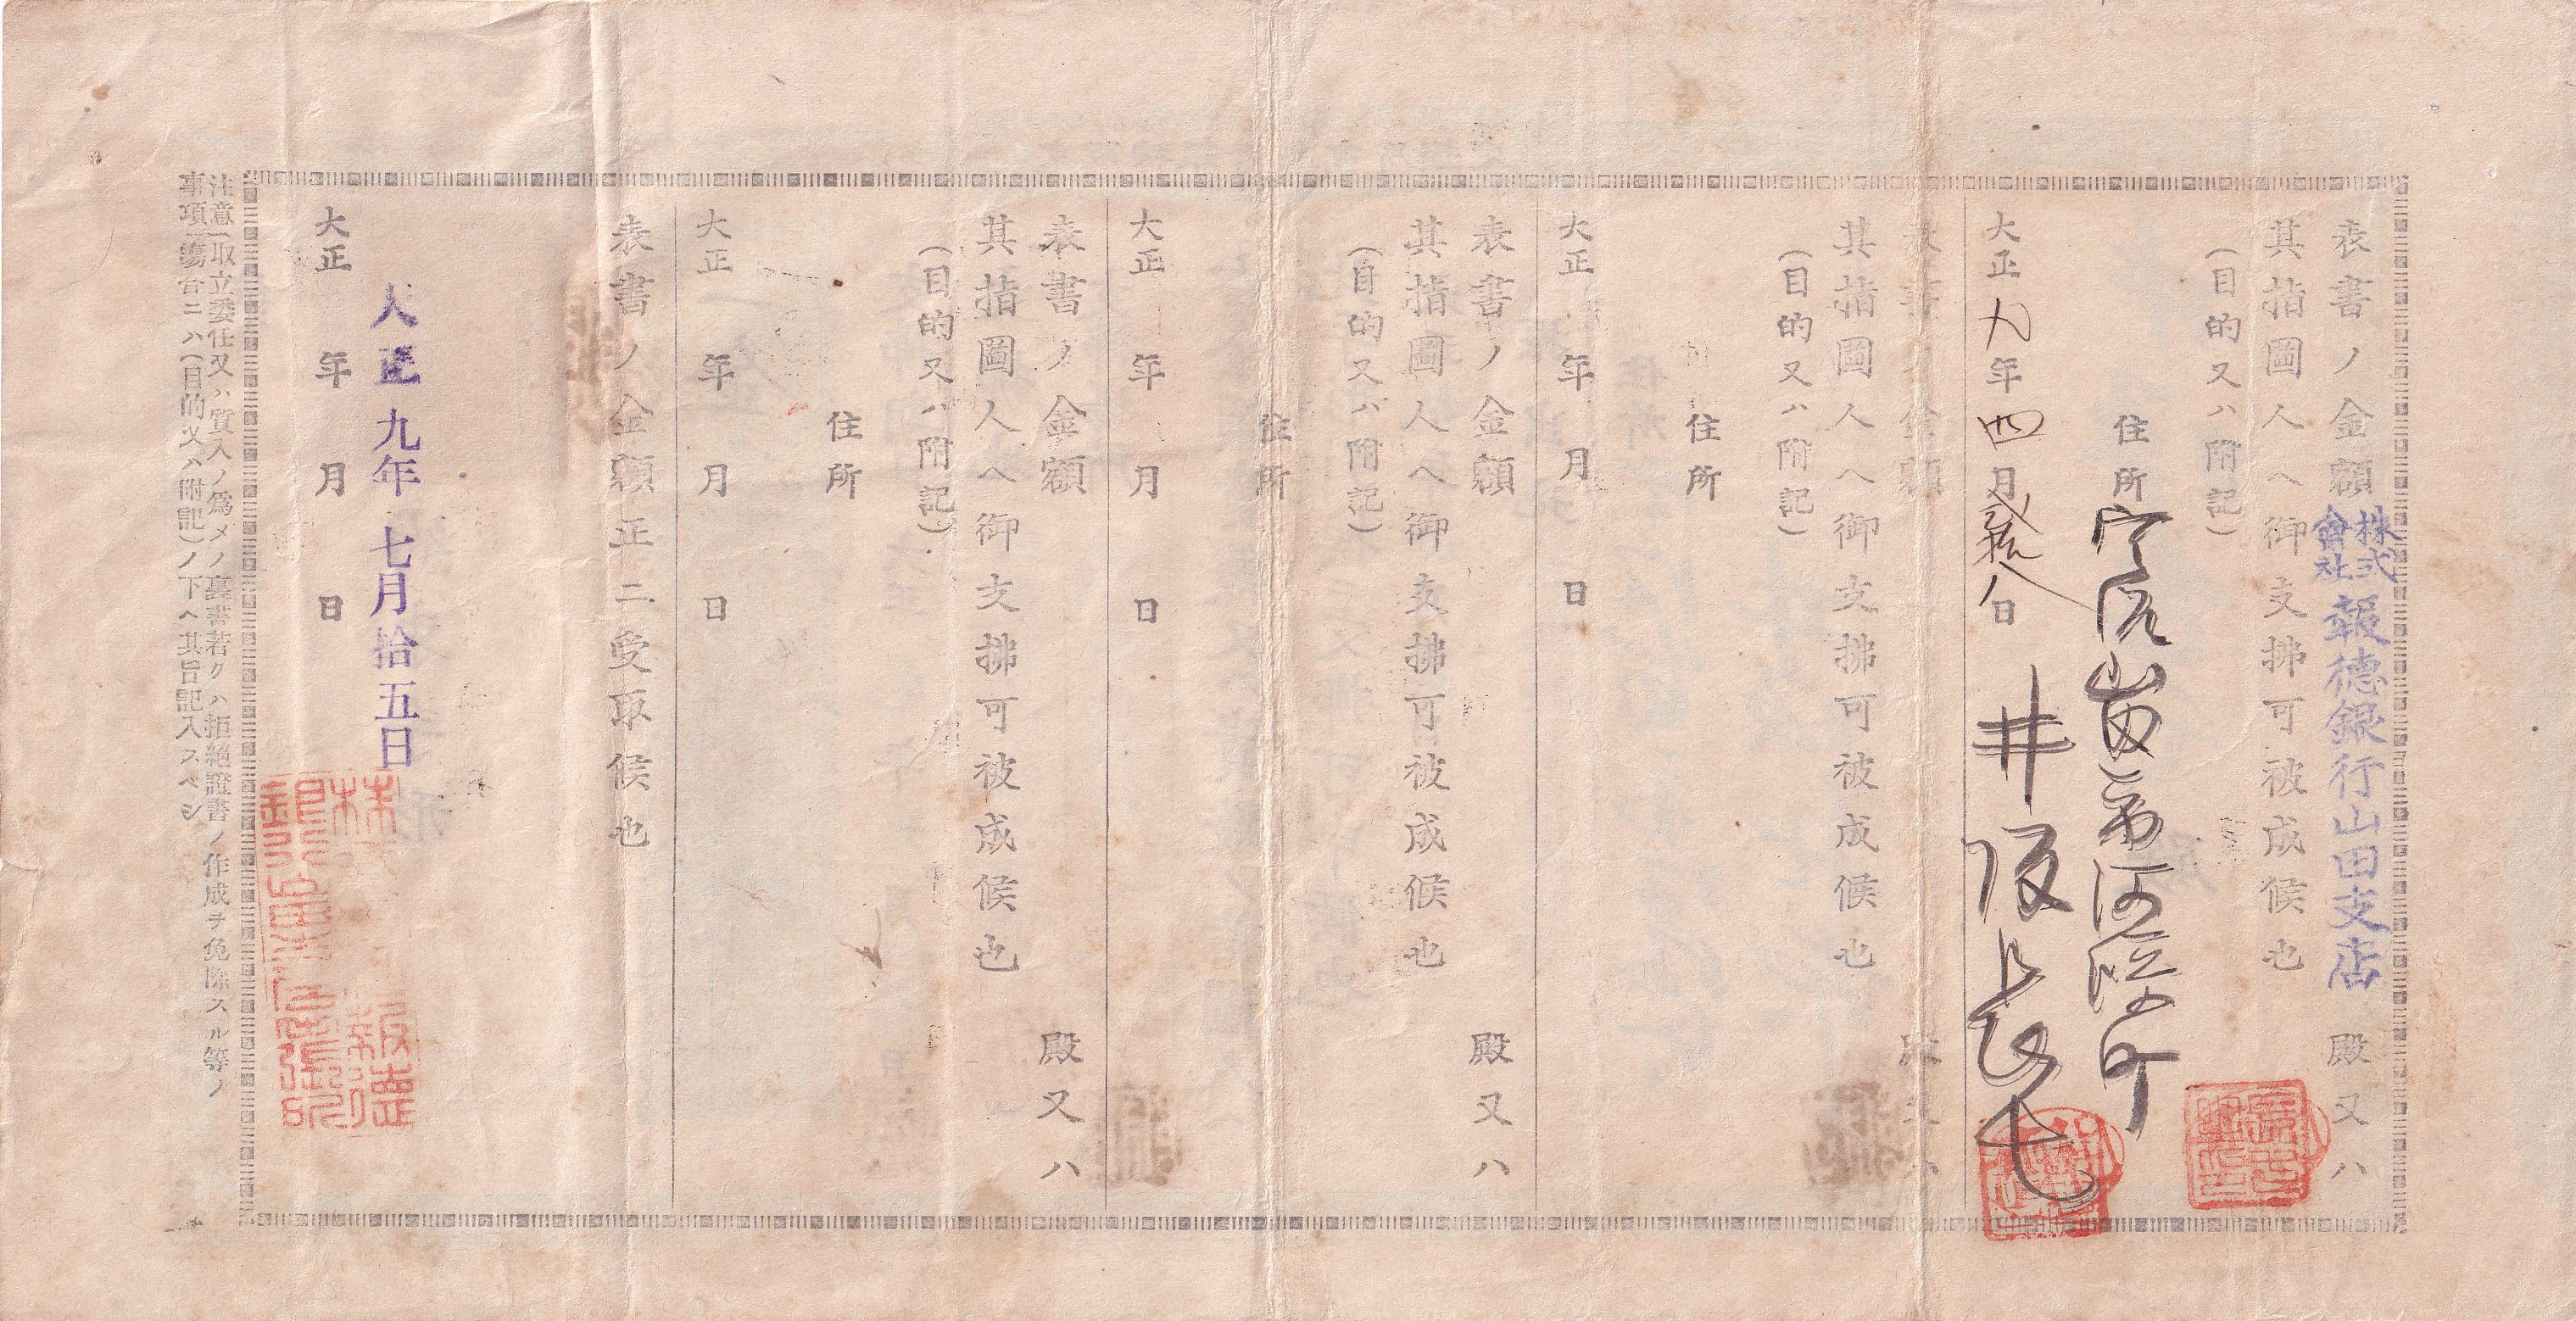 表書ノ金額
株式會社報德銀行山田支店
殿又ハ
其指圖人ヘ御支拂可被成候也
(目的又ハ附記)
住所
大正九年四月 日
井阪
表書ノ金額
殿又ハ
其指圖人ヘ御支拂可被成候也
(目的又ハ附記)
住所
大正 年 月 日
表書ノ金額
殿又ハ
其指圖人ヘ御支拂可被成候也
(目的又ハ附記)
住所
大正 年 月 日
表書ノ金額
殿又ハ
其指圖人ヘ御支拂可被成候也
(目的又ハ附記)
住所
大正 年 月 日
表書ノ金額正ニ受取候也
大正九年七月拾五日
大正 年 月 日
株式
報德
銀行
注意 取立委任又ハ質入ノ爲メノ裏書若クハ拒絶證書ノ作成ヲ免除スル等ノ
事項 塲合ニハ(目的又ハ附記)ノ下ヘ其旨記入スベシ